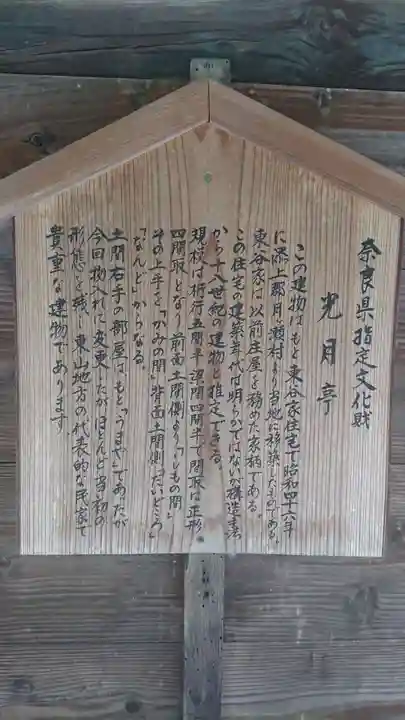 奈良県指定文化財
光月亭
この建物はもと東谷家住宅で昭和四十六年
に添上郡月ヶ瀬村より当地に移築したものである。
東谷家は以前庄屋を務めた家柄である。
この住宅の建築年代は明らかではないが構造手法
から十八世紀の建物と推定できる。
規模は桁行五間半梁間四間半で間取は正形
四間取となり、前面土間側より「しもの間」
その上手を「かみの間」背面土間側「だいどころ」
「なんど」からなる。
土間右手の部屋はもと「うまや」であったが
今回物入れに変更したがほとんど当初の
形態を残し東山地方の代表的な民家で
貴重な建物であります。